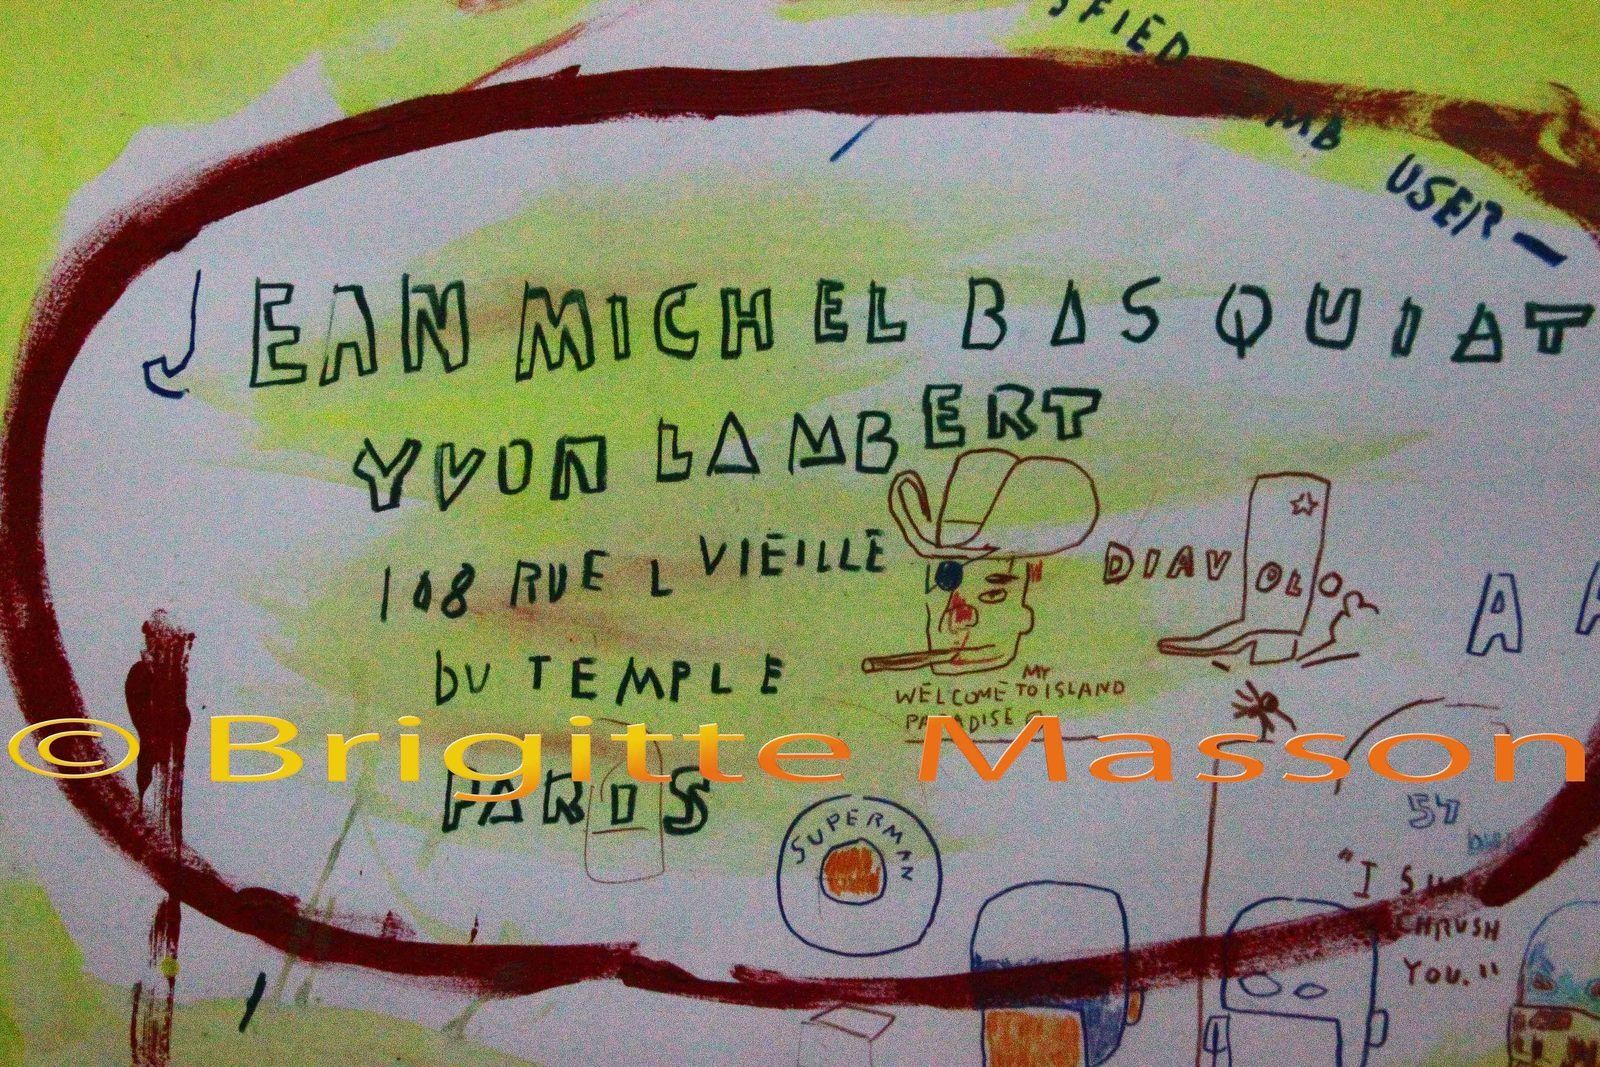 SFIED
MB USER—
JEAN MICHEL BASQUIAT
YVON LAMBERT
108 RUE L VIEILLE
DU TEMPLE
PARIS
DIAVOLO
WELCOME TO MY ISLAND
PARADISE
A A
© Brigitte Masson
SUPERMAN
57
"I
CHRUSH
YOU."